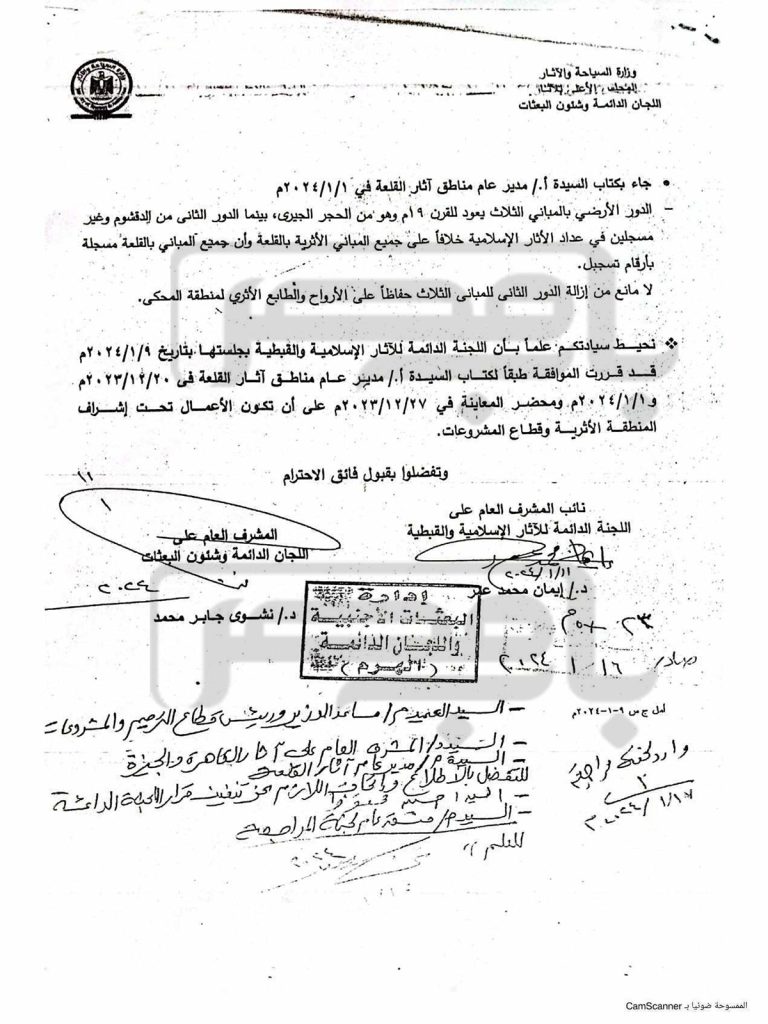 وزارة السياحة والآثار
المجلس الأعلى للآثار
اللجان الدائمة وشئون البعثات
• جاء بكتاب السيدة أ./ مدير عام مناطق آثار القلعة في ٢٠٢٤/١/١م
– الدور الأرضي بالمباني الثلاث يعود للقرن ١٩م وهو من الحجر الجيرى، بينما الدور الثانى من الدقشوم وغير
مسجلين في عداد الأثار الإسلامية خلافاً على جميع المباني الأثرية بالقلعة وأن جميع المباني بالقلعة مسجلة
بأرقام تسجيل.
لا مانع من إزالة الدور الثانى للمبانى الثلاث حفاظاً على الأرواح والطابع الأثري لمنطقة المحكى.
❖ نحيط سيادتكم علماً بأن اللجنة الدائمة للآثار الإسلامية والقبطية بجلستها بتاريخ ٢٠٢٤/١/٩م
قد قررت الموافقة طبقاً لكتاب السيدة أ./ مدير عام مناطق آثار القلعة فى ٢٠٢٣/١٢/٢٠م
و٢٠٢٤/١/١م ومحضر المعاينة في ٢٠٢٣/١٢/٢٧م على أن تكون الأعمال تحت إشراف
المنطقة الأثرية وقطاع المشروعات.
وتفضلوا بقبول فائق الاحترام
نائب المشرف العام على
اللجنة الدائمة للآثار الإسلامية والقبطية
٢٠٢٤/١/١١
د./ إيمان محمد
المشرف العام على
اللجان الدائمة وشئون البعثات
٢٠٢٤
د./ نشوى جابر محمد
إدارة
البعثات الأجنبية
واللجان الدائمة
(الهرم)
صادر/
١٦ / ١ / ٢٠٢٤
أمل ج س ٩-١-٢٠٢٤م
– السيد العميد م/ مساعد الوزير ورئيس قطاع الترميم والمشروعات
– السيد د/ المشرف العام على آثار القاهرة والجيزة
– السيدة م/ مدير عام آثار القلعة
للتفضل بالاطلاع واتخاذ اللازم نحو تنفيذ قرار اللجنة الدائمة
– السيد م/ عام لجنة المراجعة
للعلم
٢٠٢٤/١/١٧م
باهر مصر
باهر مصر
الممسوحة ضوئيا بـ CamScanner